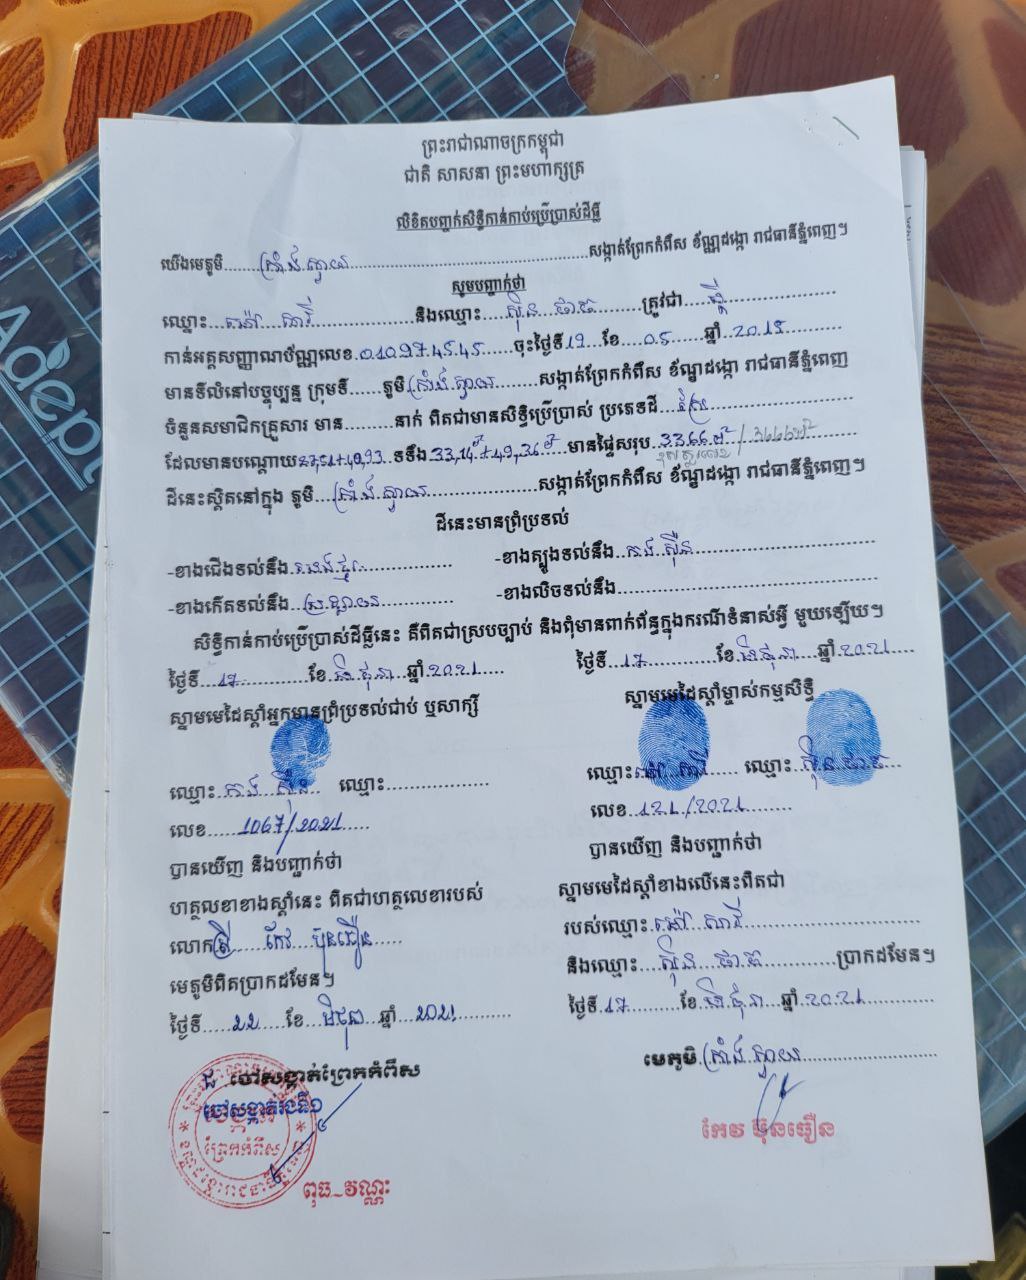 ព្រះរាជាណាចក្រកម្ពុជា
ជាតិ សាសនា ព្រះមហាក្សត្រ
លិខិតបញ្ជាក់សិទ្ធិកាន់កាប់ប្រើប្រាស់ដីធ្លី
យើងមេភូមិ......ត្រាំង ស្វាយ......សង្កាត់ព្រែកកំពឹស ខ័ណ្ឌដង្កោ រាជធានីភ្នំពេញ។
សូមបញ្ជាក់ថា
ឈ្មោះ......និងឈ្មោះ......ស៊ិន ផាន......ត្រូវជា......ប្ដី......
កាន់អត្តសញ្ញាណប័ណ្ណលេខ.010974545......ចុះថ្ងៃទី12 ខែ....05.....ឆ្នាំ..2018......
មានទីលំនៅបច្ចុប្បន្ន ក្រុមទី......ភូមិ.ត្រាំង ស្វាយ......សង្កាត់ព្រែកកំពឹស ខ័ណ្ឌដង្កោ រាជធានីភ្នំពេញ
ចំនួនសមាជិកគ្រួសារ មាន.........នាក់ ពិតជាមានសិទ្ធិប្រើប្រាស់ ប្រភេទដី....ស្រែ......
ដែលមានបណ្តោយ......ទទឹង 33,14ម+49,36ម មានផ្ទៃសរុប..3366ម² / 3666ម²
ដីនេះស្ថិតនៅក្នុង ភូមិ....ត្រាំង ស្វាយ......សង្កាត់ព្រែកកំពឹស ខ័ណ្ឌដង្កោ រាជធានីភ្នំពេញ។
ដីនេះមានព្រំប្រទល់
-ខាងជើងទល់នឹង...... -ខាងត្បូងទល់នឹង..កង ស៊ឺន......
-ខាងកើតទល់នឹង...... -ខាងលិចទល់នឹង......
សិទ្ធិកាន់កាប់ប្រើប្រាស់ដីធ្លីនេះ គឺពិតជាស្របច្បាប់ និងពុំមានពាក់ព័ន្ធក្នុងករណីទំនាស់អ្វី មួយឡើយ។
ថ្ងៃទី...17......ខែ.មិថុនា...ឆ្នាំ.2021...... ថ្ងៃទី....17......ខែ.មិថុនា....ឆ្នាំ.2021....
ស្នាមមេដៃស្តាំអ្នកមានព្រំប្រទល់ជាប់ ឬសាក្សី ស្នាមមេដៃស្តាំម្ចាស់កម្មសិទ្ធិ
ឈ្មោះ.កង ស៊ឺន.. ឈ្មោះ...... ឈ្មោះ...... ឈ្មោះ..ស៊ិន ផាន..
លេខ......1067/2021..... លេខ...121/2021......
បានឃើញ និងបញ្ជាក់ថា បានឃើញ និងបញ្ជាក់ថា
ហត្ថលេខាខាងស្តាំនេះ ពិតជាហត្ថលេខារបស់ ស្នាមមេដៃស្តាំខាងលើនេះពិតជា
លោកស្រី.... កែវ ប៊ុនធឿន..... របស់ឈ្មោះ......
មេភូមិពិតប្រាកដមែន។ និងឈ្មោះ....ស៊ិន ផាន......ប្រាកដមែន។
ថ្ងៃទី.....22.....ខែ...មិថុនា...ឆ្នាំ...2021...... ថ្ងៃទី.17......ខែ.មិថុនា...ឆ្នាំ.2021......
ជ. ចៅសង្កាត់ព្រែកកំពឹស មេភូមិ.ត្រាំង ស្វាយ......
ចៅសង្កាត់រងទី១
ព្រែកកំពឹស
កែវ ប៊ុនធឿន
ពុធ_វណ្ណះ
Adept